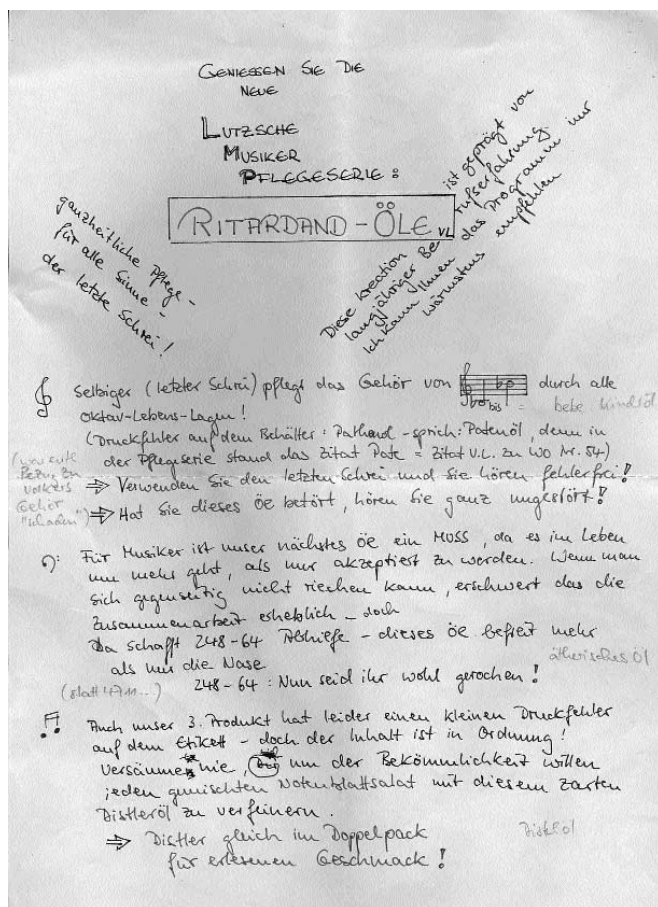 GENIESSEN SIE DIE
NEUE
LUTZSCHE
MUSIKER
PFLEGESERIE:
RITARDAND-ÖLE VL
ganzheitliche Pflege -
für alle Sinne -
der letzte Schrei!
Diese Kreation ist geprägt von
langjähriger Berufserfahrung.
Ich kann Ihnen das Programm nur
wärmstens empfehlen
Selbiger (letzter Schrei) pflegt das Gehör von bis durch alle
bebe Kindsöl
Oktav-Lebens-Lagen!
(Druckfehler auf dem Behälter: Pathend - sprich: Patenöl, denn in
der Pflegserie stand das Zitat Pate = Zitat V.L. zu WO Nr. 54)
⇒ Verwenden Sie den letzten Schrei und Sie hören fehlerfrei!
Bezug zu
Volkers
Gehör
"schaden")
⇒ Hat Sie dieses Öe betört, hören Sie ganz ungestört!
Für Musiker ist unser nächstes Öe ein MUSS, da es im Leben
um mehr geht, als nur akzeptiert zu werden. Wenn man
sich gegenseitig nicht riechen kann, erschwert das die
Zusammenarbeit erheblich - doch
Da schafft 248-64 Abhilfe - dieses Öe befreit mehr
als nur die Nase
ätherisches Öl
248-64: Nun seid ihr wohl gerochen!
(statt 4711...)
Auch unser 3. Produkt hat leider einen kleinen Druckfehler
auf dem Etikett - doch der Inhalt ist in Ordnung!
Versäume nie, um der Bekömmlichkeit willen
jeden gemischten Notenblattsalat mit diesem zarten
Distleröl zu verfeinern.
Distlöl
⇒ Distler gleich im Doppelpack
für erlesenen Geschmack!